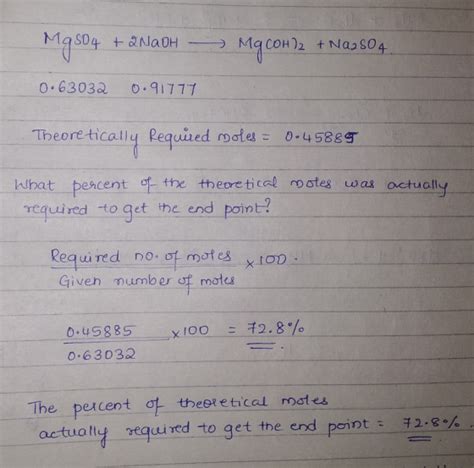 MgSO4 + 2NaOH → Mg(OH)2 + Na2SO4.
0.63032 0.91777
Theoretically Required moles = 0.45885
What percent of the theoretical moles was actually
required to get the end point?
Required no. of moles × 100.
Given number of moles
0.45885 × 100 = 72.8%
0.63032
The percent of theoretical moles
actually required to get the end point = 72.8%.